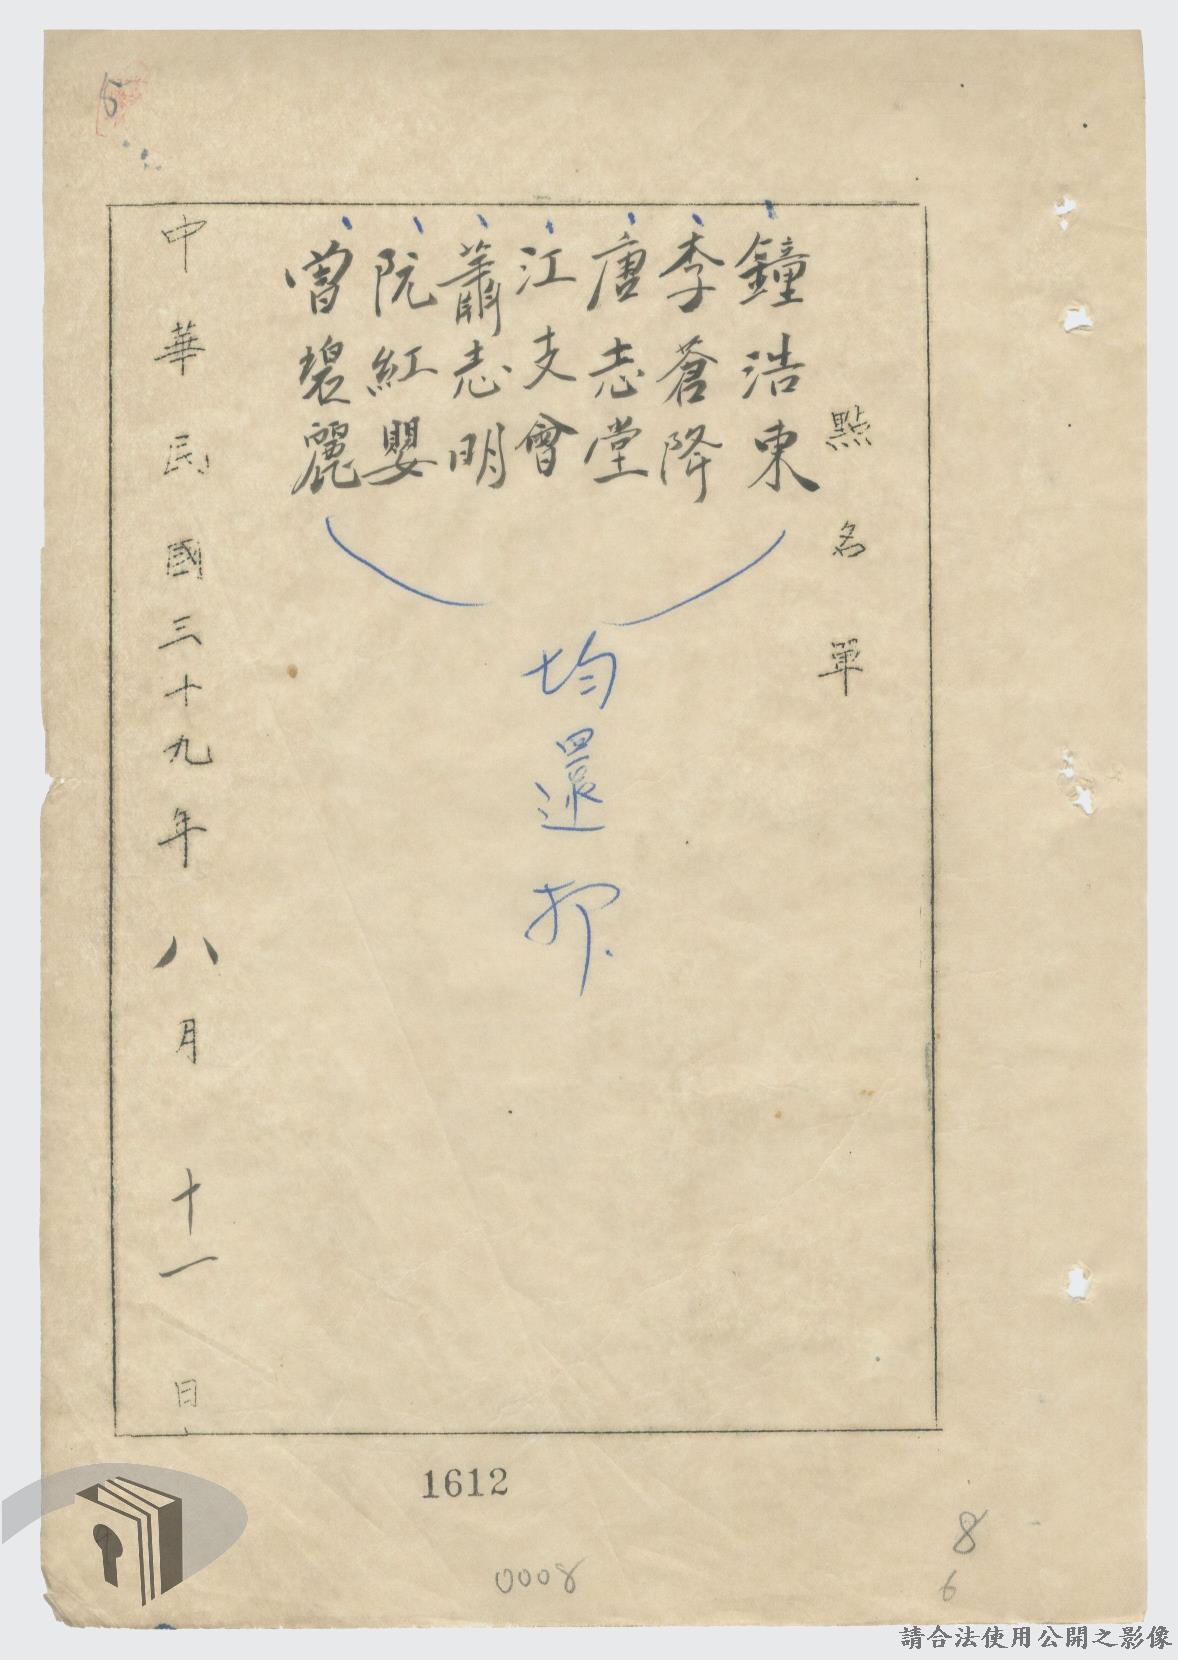 點名單
鐘浩東
李蒼降
唐志堂
江支會
蕭志明
阮紅嬰
曾碧麗
均還押
中華民國三十九年八月十一日
5
1612
0008
8
6
請合法使用公開之影像